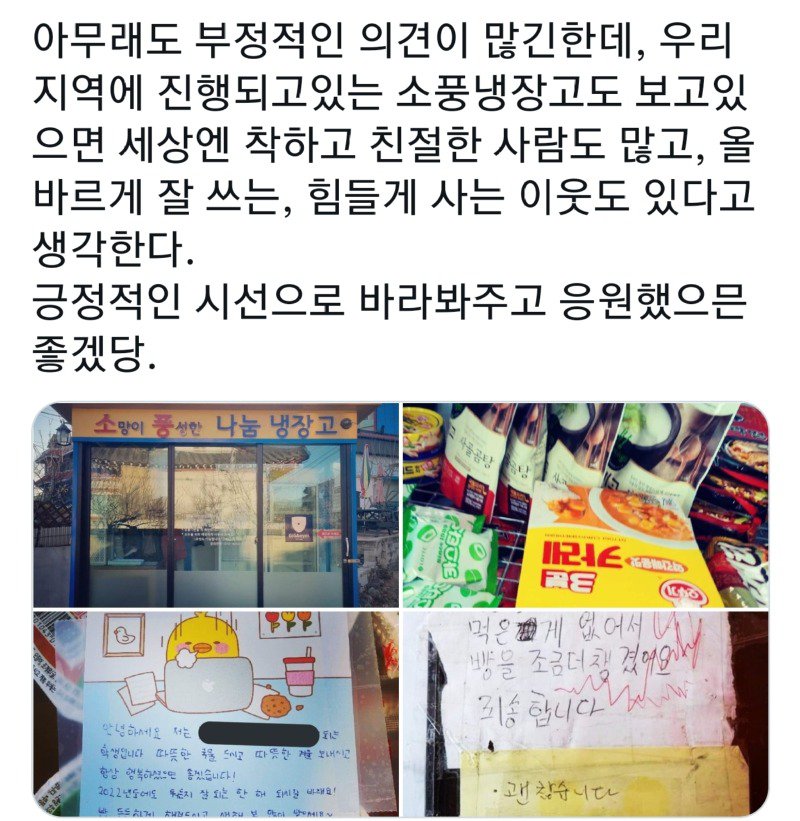 아무래도 부정적인 의견이 많긴한데, 우리
지역에 진행되고있는 소풍냉장고도 보고있
으면 세상엔 착하고 친절한 사람도 많고, 올
바르게 잘 쓰는, 힘들게 사는 이웃도 있다고
생각한다.
긍정적인 시선으로 바라봐주고 응원했으믄
좋겠당.
소망이 풍성한 나눔 냉장고
사골곰탕
곰탕
3분
카레
오뚜기
먹은게 없어서
빵을 조금더 챙겼어요
죄송합니다
안녕하세요 저는 되는
학생입니다 따뜻한 국물 드시고 따뜻한 겨울 보내시고
항상 행복하셨으면 좋겠습니다!
2022년도에도 무슨지 잘 되는 한 해 되시길 바래요!
· 괜찮습니다